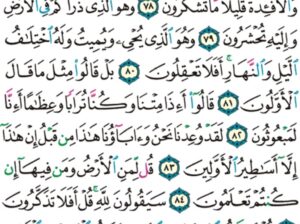 وَٱلْأَفْـِٔدَةَ قَلِيلًا مَّا تَشْكُرُونَ ٧٨ وَهُوَ ٱلَّذِى ذَرَأَكُمْ فِى ٱلْأَرْضِ
وَإِلَيْهِ تُحْشَرُونَ ٧٩ وَهُوَ ٱلَّذِى يُحْىِۦ وَيُمِيتُ وَلَهُ ٱخْتِلَـٰفُ
ٱلَّيْلِ وَٱلنَّهَارِ أَفَلَا تَعْقِلُونَ ٨٠ بَلْ قَالُوا۟ مِثْلَ مَا قَالَ
ٱلْأَوَّلُونَ ٨١ قَالُوٓا۟ أَءِذَا مِتْنَا وَكُنَّا تُرَابًا وَعِظَـٰمًا أَءِنَّا
لَمَبْعُوثُونَ ٨٢ لَقَدْ وُعِدْنَا نَحْنُ وَءَابَآؤُنَا هَـٰذَا مِن قَبْلُ إِنْ هَـٰذَآ
إِلَّآ أَسَـٰطِيرُ ٱلْأَوَّلِينَ ٨٣ قُل لِّمَنِ ٱلْأَرْضُ وَمَن فِيهَآ إِن
كُنتُمْ تَعْلَمُونَ ٨٤ سَيَقُولُونَ لِلَّهِ قُلْ أَفَلَا تَذَكَّرُونَ